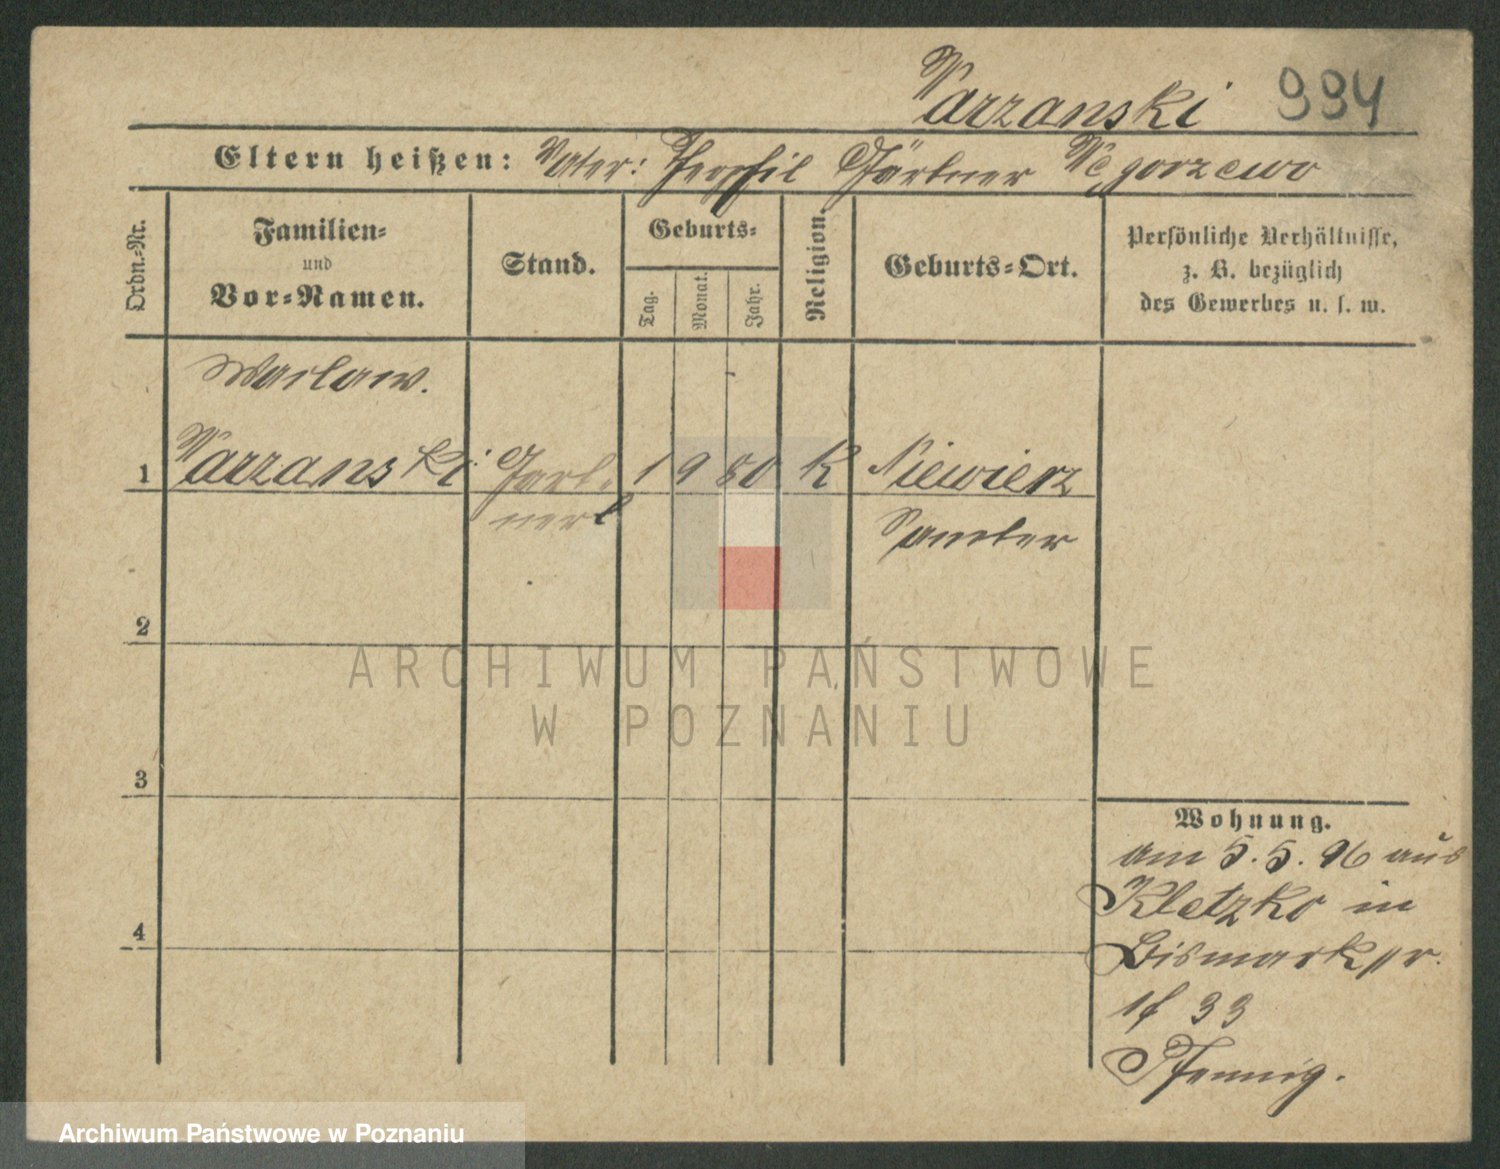 Warzanski 994
Eltern heißen: Vater: Theophil Gärtner Węgorzewo
Ordn.-Nr.
Familien-
und
Vor-Namen.
Stand.
Geburts-
Tag.
Monat.
Jahr.
Religion.
Geburts-Ort.
Persönliche Verhältnisse,
z. B. bezüglich
des Gewerbes u. s. w.
Waclaw.
1 Warzanski Gärt- 1 9 80 K Niewierz
nerl Samter
2
3
4
Wohnung.
am 5.5.96 aus
Kletzko in
Bismarckstr.
33
Pfennig.
ARCHIWUM PAŃSTWOWE
W POZNANIU
Archiwum Państwowe w Poznaniu